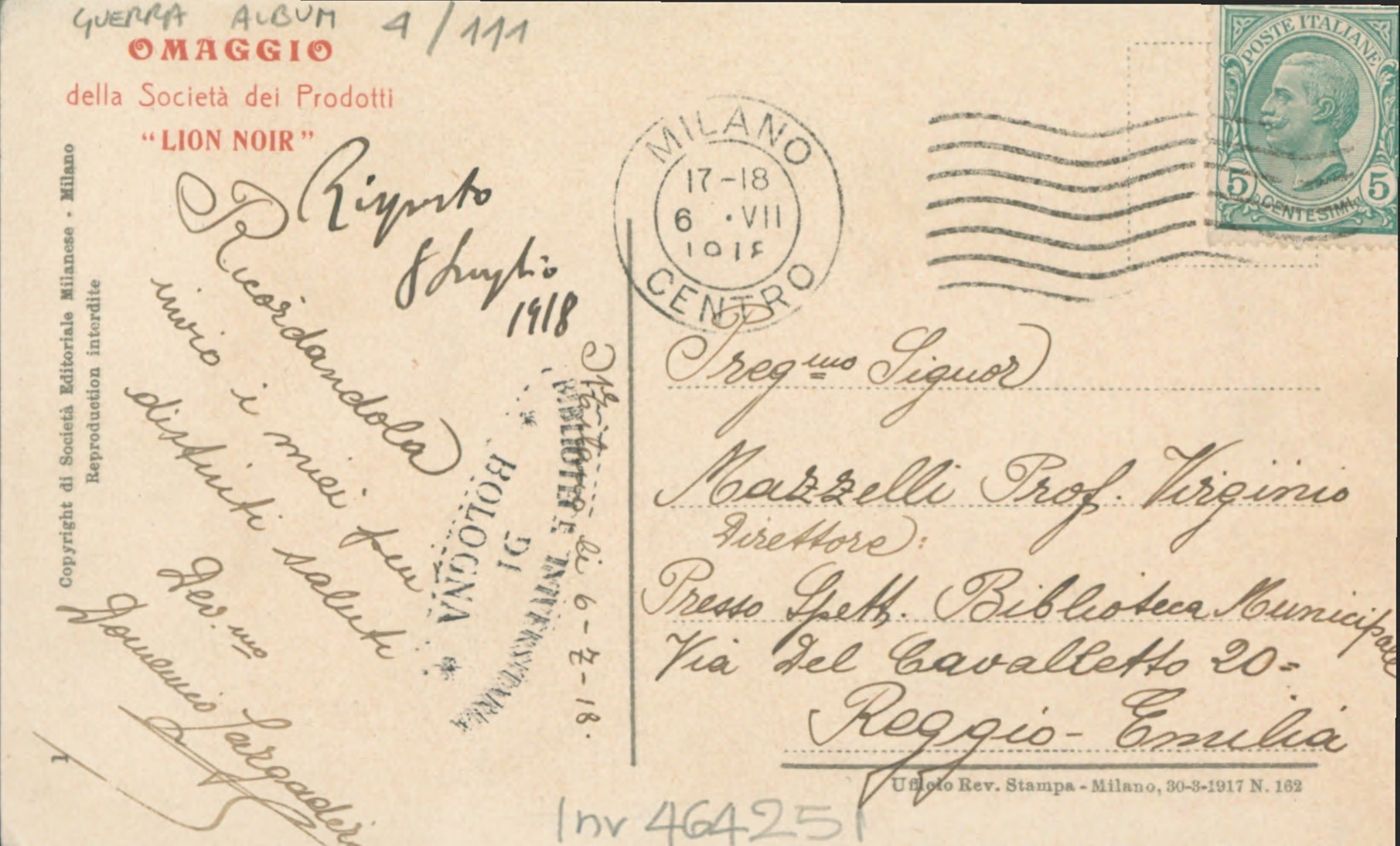 GUERRA ALBUM 4/111
OMAGGIO
della Società dei Prodotti
"LION NOIR"
Copyright di Società Editoriale Milanese - Milano
Reproduction interdite
Risposto
8 luglio
1918
Ricordandola
invio i miei più
distinti saluti
Dev.mo
Domenico
Milano li 6-7-18.
BIBLIOTECA UNIVERSITARIA
DI
BOLOGNA
MILANO
17-18
6 · VII
1918
CENTRO
POSTE ITALIANE
5 5
CENTESIMI
Pregmo Signor
Mazzelli Prof. Virginio
Direttore:
Presso Spett. Biblioteca Municipale
Via Del Cavalletto 20=
Reggio-Emilia
Ufficio Rev. Stampa - Milano, 30-3-1917 N. 162
Inv 464251